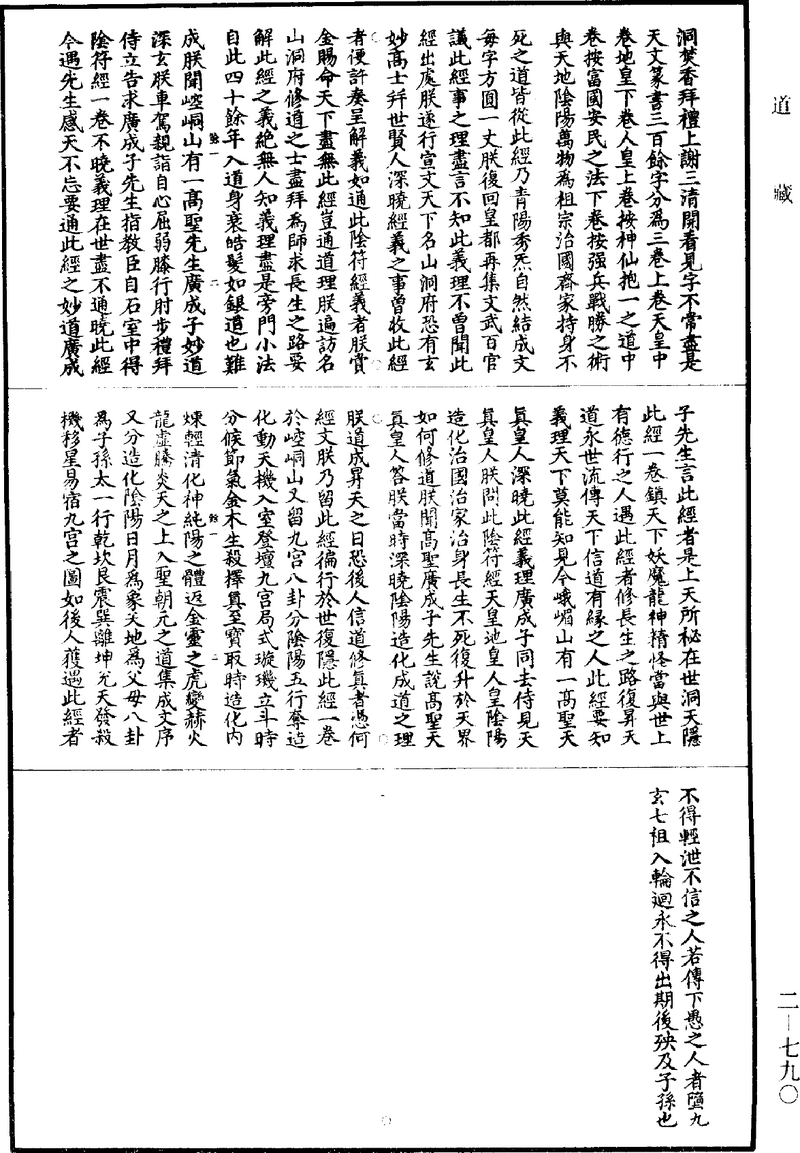 道藏
二—七九〇
洞焚香拜禮上謝三清開看見字不常盡是
天文篆書三百餘字分為三卷上卷天皇中
卷地皇下卷人皇上卷按神仙抱一之道中
卷按富國安民之法下卷按強兵戰勝之術
與天地陰陽萬物為祖宗治國齊家持身不
死之道皆從此經乃青陽秀炁自然結成文
每字方圓一丈朕復回皇都再集文武百官
議此經事之理盡言不知此義理不曾聞此
經出處朕遂行宣文天下名山洞府恐有玄
妙高士并世賢人深曉經義之事曾收此經
者便許奏呈解義如通此陰符經義者朕賞
金賜命天下盡無此經豈通道理朕遍訪名
山洞府修道之士盡拜為師求長生之路要
解此經之義絶無人知義理盡是旁門小法
自此四十餘年入道身衰皓髮如銀道也難
成朕聞崆峒山有一高聖先生廣成子妙道
深玄朕車駕親詣自心屈弱膝行肘步禮拜
侍立告求廣成子先生指教臣自石室中得
陰符經一卷不曉義理在世盡不通曉此經
今遇先生感天不忘要通此經之妙道廣成
子先生言此經者是上天所秘在世洞天隱
此經一卷鎮天下妖魔龍神精怪當與世上
有德行之人遇此經者修長生之路復昇天
道永世流傳天下信道有緣之人此經要知
義理天下莫能知見今峨嵋山有一高聖天
真皇人深曉此經義理廣成子同去侍見天
真皇人朕問此陰符經天皇地皇人皇陰陽
造化治國治家治身長生不死復升於天界
如何修道朕聞高聖廣成子先生說高聖天
真皇人答朕當時深曉陰陽造化成道之理
朕道成昇天之日恐後人信道修真者憑何
經文朕乃留此經徧行於世復隱此經一卷
於崆峒山又留九宮八卦分陰陽五行奪造
化動天機入室登壇九宮局式璇璣立斗時
分候節氣金木生殺擇真至寶取時造化內
煉輕清化神純陽之體返金靈之虎變赫火
龍虛騰炎天之上入聖朝元之道集成文序
又分造化陰陽日月為象天地為父母八卦
為子孫太一行乾坎艮震巽離坤兌天發殺
機移星易宿九宮之圖如後人獲遇此經者
不得輕泄不信之人若傳下愚之人者墮九
玄七祖入輪迴永不得出期後殃及子孫也